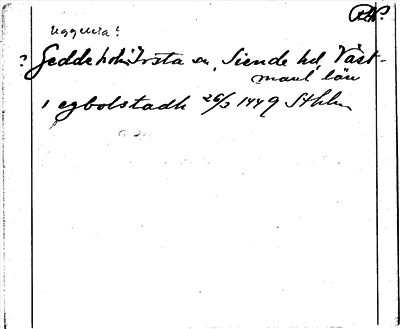 RAP.
Uggelsta?
? Geddeholm Irsta sn, Siende hd, Väst-
manl. län
i egbolstadh 26/3 1449 Sthlm